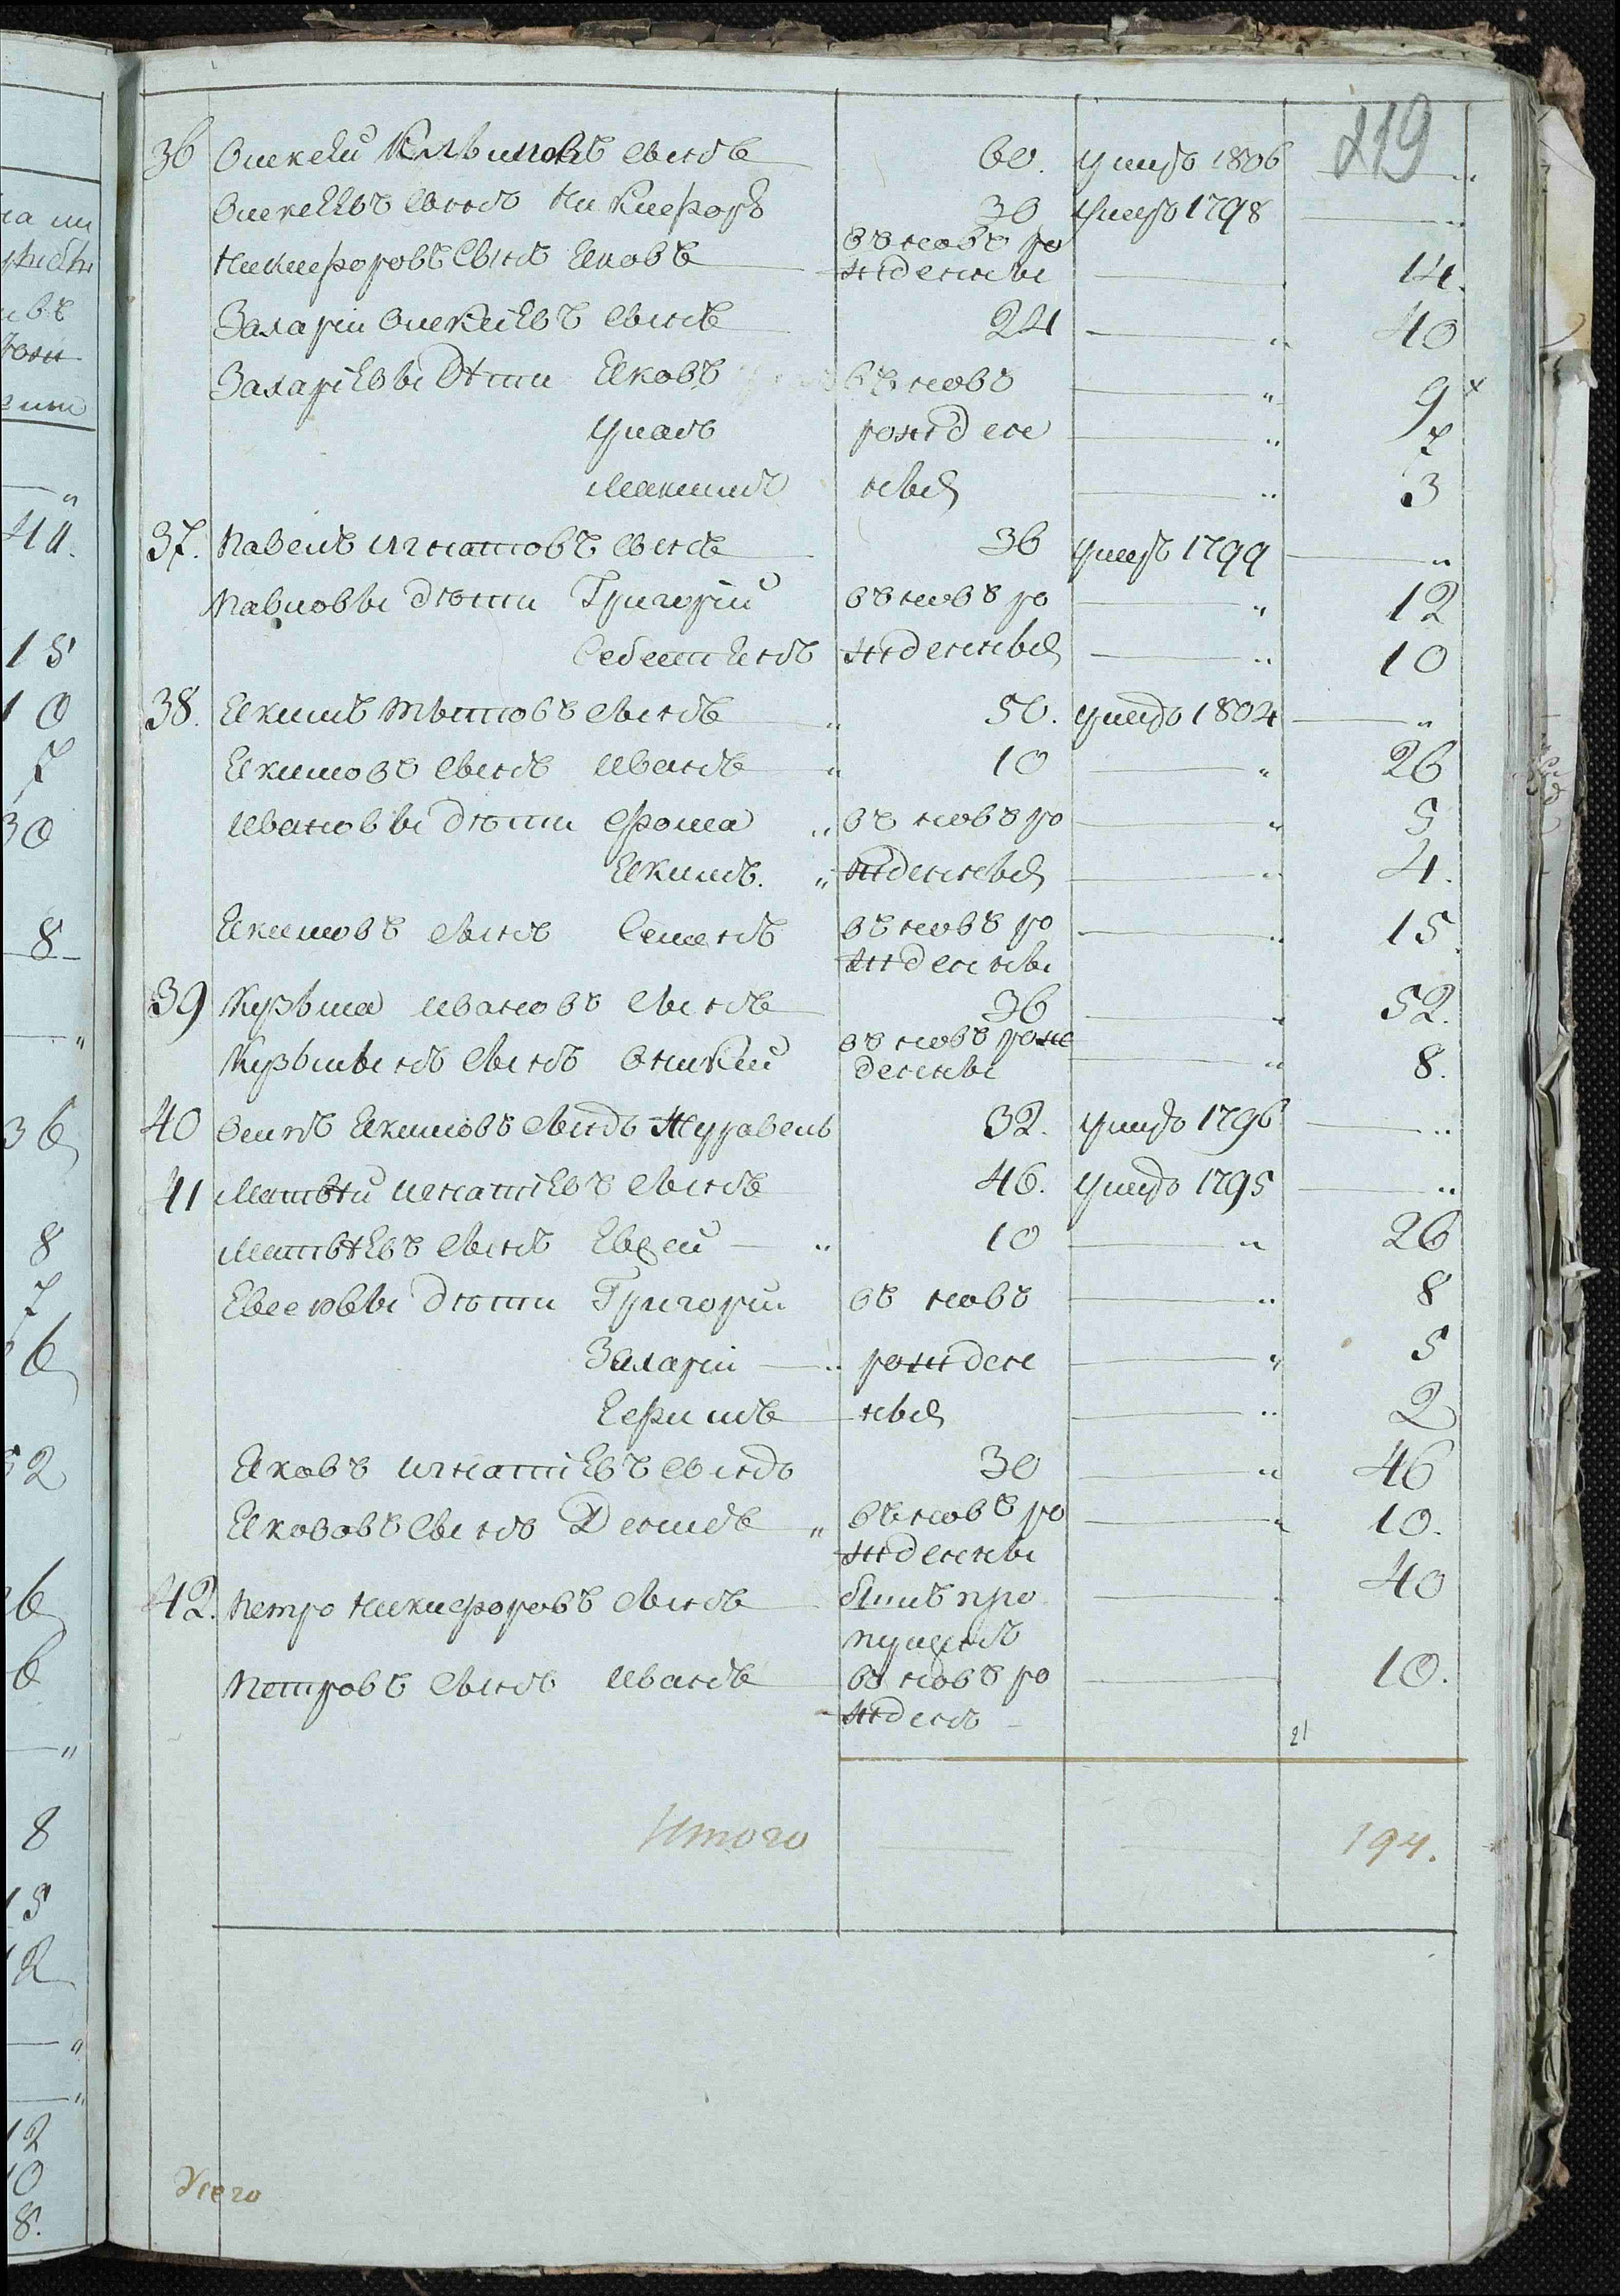 219
36 Олексѣй Климовъ сынъ 60. умеръ 1806
Олексѣевъ сынъ Никифоръ 30 умеръ 1798
Никифоровъ сынъ Яковъ въ новъ ро
жденны 14.
Захарій Олексіевъ сынъ 24 40
Захаріевы дѣти Яковъ въ новъ 9
рожден 7
Максимъ ныя 3
37. Павелъ Игнатовъ сынъ 36 умеръ 1799
Павловы дѣти Григорій въ новъ ро 12
жденныя 10
38. Якимъ Титовъ сынъ 50. умеръ 1804
Якимовъ сынъ Иванъ 10 26
Ивановы дѣти Фома въ новъ ро 5
Якимъ. жденныя 4.
Якимовъ сынъ Семенъ въ новъ ро 15
жденны
39 Кузьма Ивановъ сынъ 36 52.
Кузьминъ сынъ Оникій въ новъ рож
денны 8.
40 Осипъ Якимовъ сынъ Журавель 32. умеръ 1796
41 Матвѣй Игнатіевъ сынъ 46. умеръ 1795
Матвѣевъ сынъ Евсей 10 26
Евсеювы дѣти Григорій въ новъ 8
Захарій рожден 5
Ефимъ ныя 2
Яковъ Игнатіевъ сынъ 30 46
Якововъ сынъ Демидъ въ новъ ро 10.
жденны
42. Петро Никифоровъ сынъ былъ про 40
пущенъ
Петровъ сынъ Иванъ въ новъ ро 10.
жденъ
21
Итого 194.
Усего